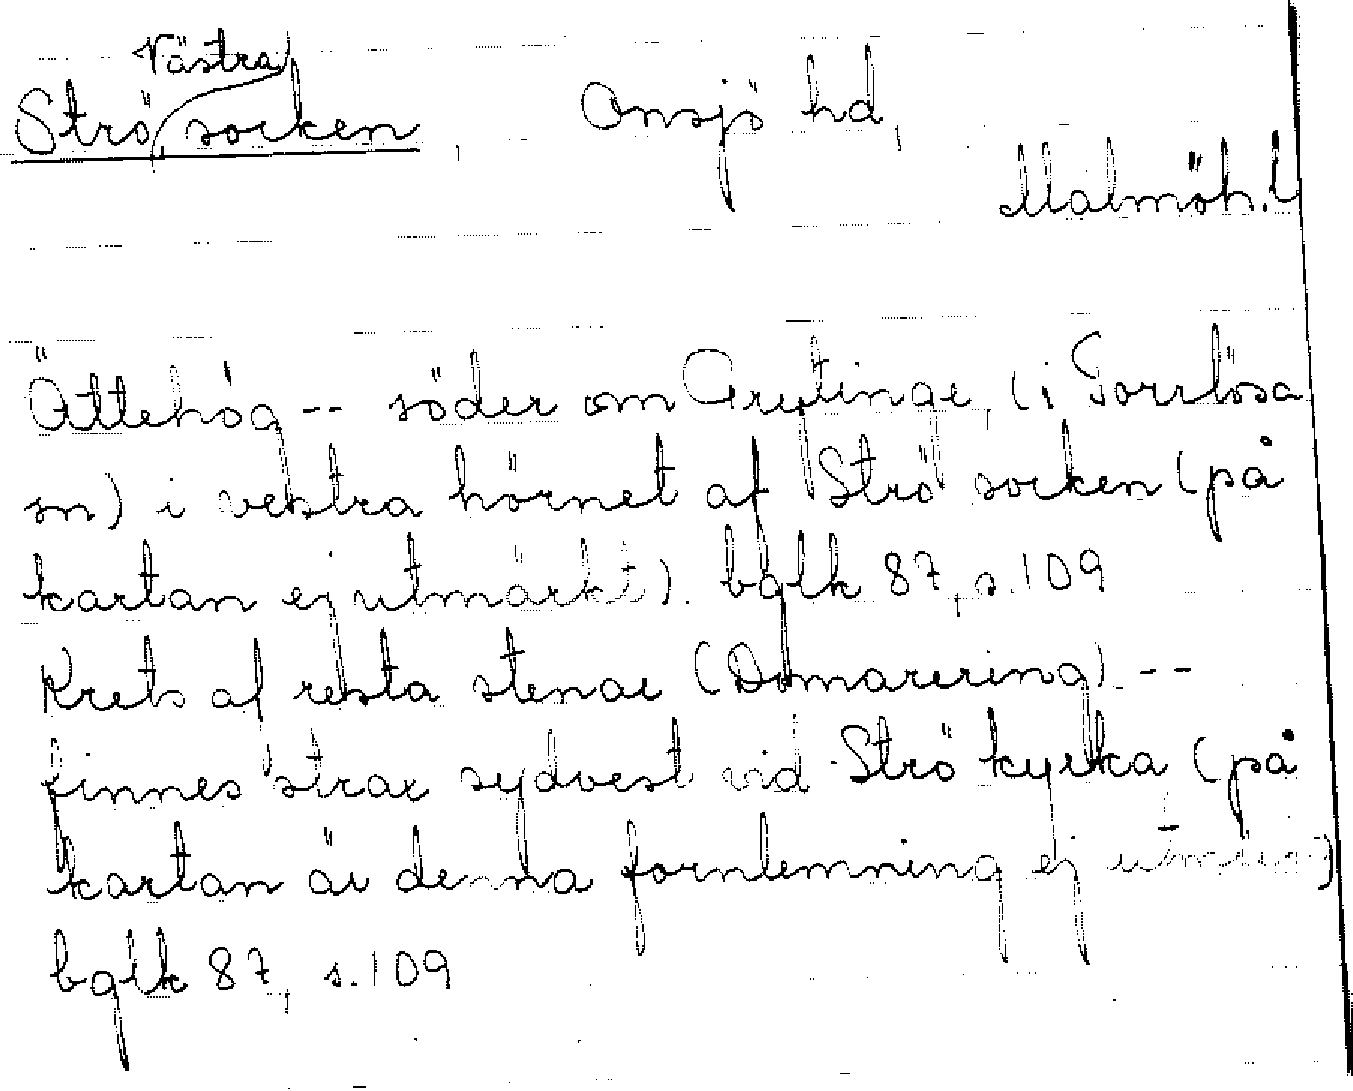 Västra
Strö socken, Onsjö hd,
Malmöh.l
Ättehög -- söder om Gryttinge, (i Torrlösa
sn) i vestra hörnet af Strö socken (på
kartan ej utmärkt). bglk 87, s.109
Krets af resta stenar (Domarering) --
finnes strax sydvest vid Strö kyrka (på
kartan är denna fornlemning ej utmärkt)
bglk 87, s.109